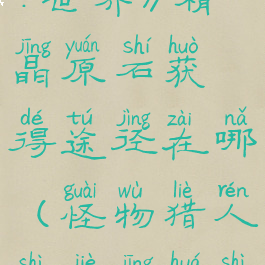 ：世界》精
jīng yuán shí huò
晶原石获
dé tú jìng zài nǎ
得途径在哪
guài wù liè rén
（怪物猎人
shì jiè jīng huá shì